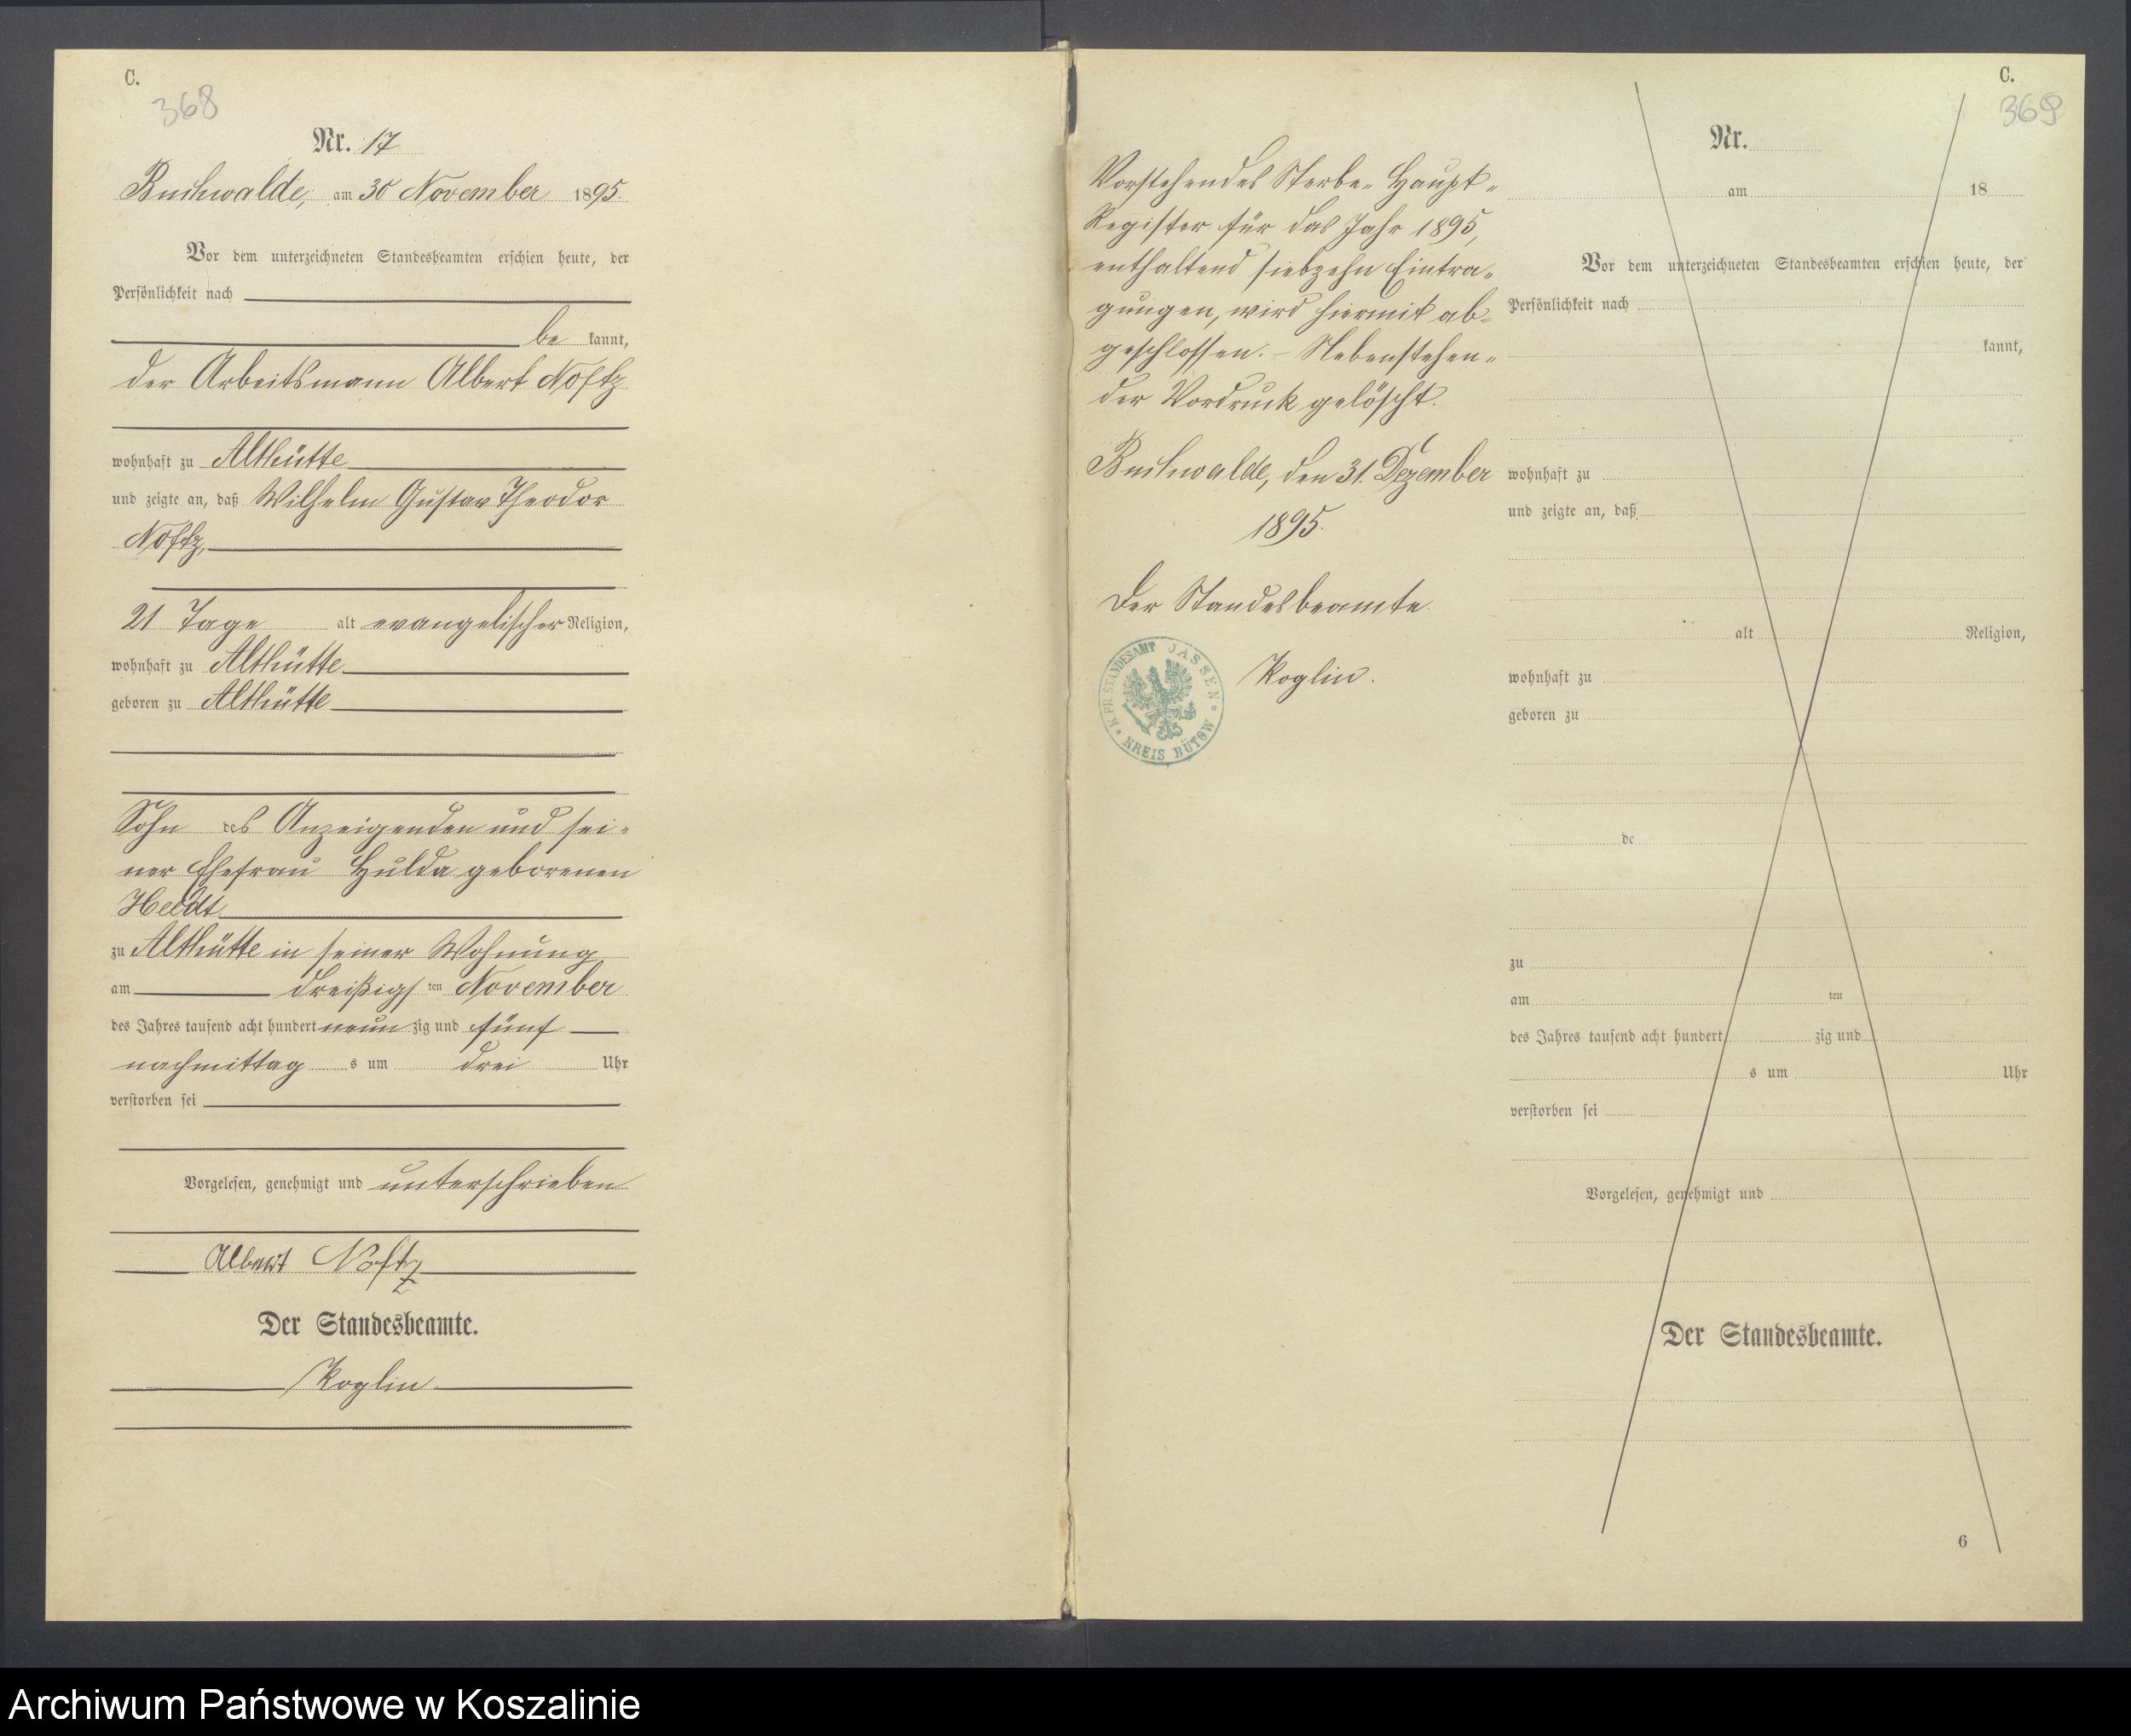 C.
368
Nr. 17
Buchwalde, am 30 November 1895.
Vor dem unterzeichneten Standesbeamten erschien heute, der
Persönlichkeit nach
be kannt,
der Arbeitsmann Albert Nöftz
wohnhaft zu Althütte
und zeigte an, daß Wilhelm Gustav Theodor
Nöftz,
21 Tage alt evangelischer Religion,
wohnhaft zu Althütte
geboren zu Althütte
Sohn des Anzeigenden und sei-
ner Ehefrau Hulda geborenen
Heldt
zu Althütte in seiner Wohnung
am dreißigsten November
des Jahres tausend acht hundert neunzig und fünf
nachmittags um drei Uhr
verstorben sei
Vorgelesen, genehmigt und unterschrieben
Albert Nöftz
Der Standesbeamte.
Koglin.
Vorstehendes Sterbe-Haupt-
Register für das Jahr 1895,
enthaltend siebzehn Eintra-
gungen, wird hiermit ab-
geschlossen. - Nebenstehen-
der Vordruck gelöscht.
Buchwalde, den 31. Dezember
1895.
Der Standesbeamte.
Koglin.
K. PR. STANDESAMT JASSEN
KREIS BÜTOW
C.
369
Nr.
am 18
Vor dem unterzeichneten Standesbeamten erschien heute, der
Persönlichkeit nach
kannt,
wohnhaft zu
und zeigte an, daß
alt Religion,
wohnhaft zu
geboren zu
de
zu
am ten
des Jahres tausend acht hundert zig und
s um Uhr
verstorben sei
Vorgelesen, genehmigt und
Der Standesbeamte.
6
Archiwum Państwowe w Koszalinie